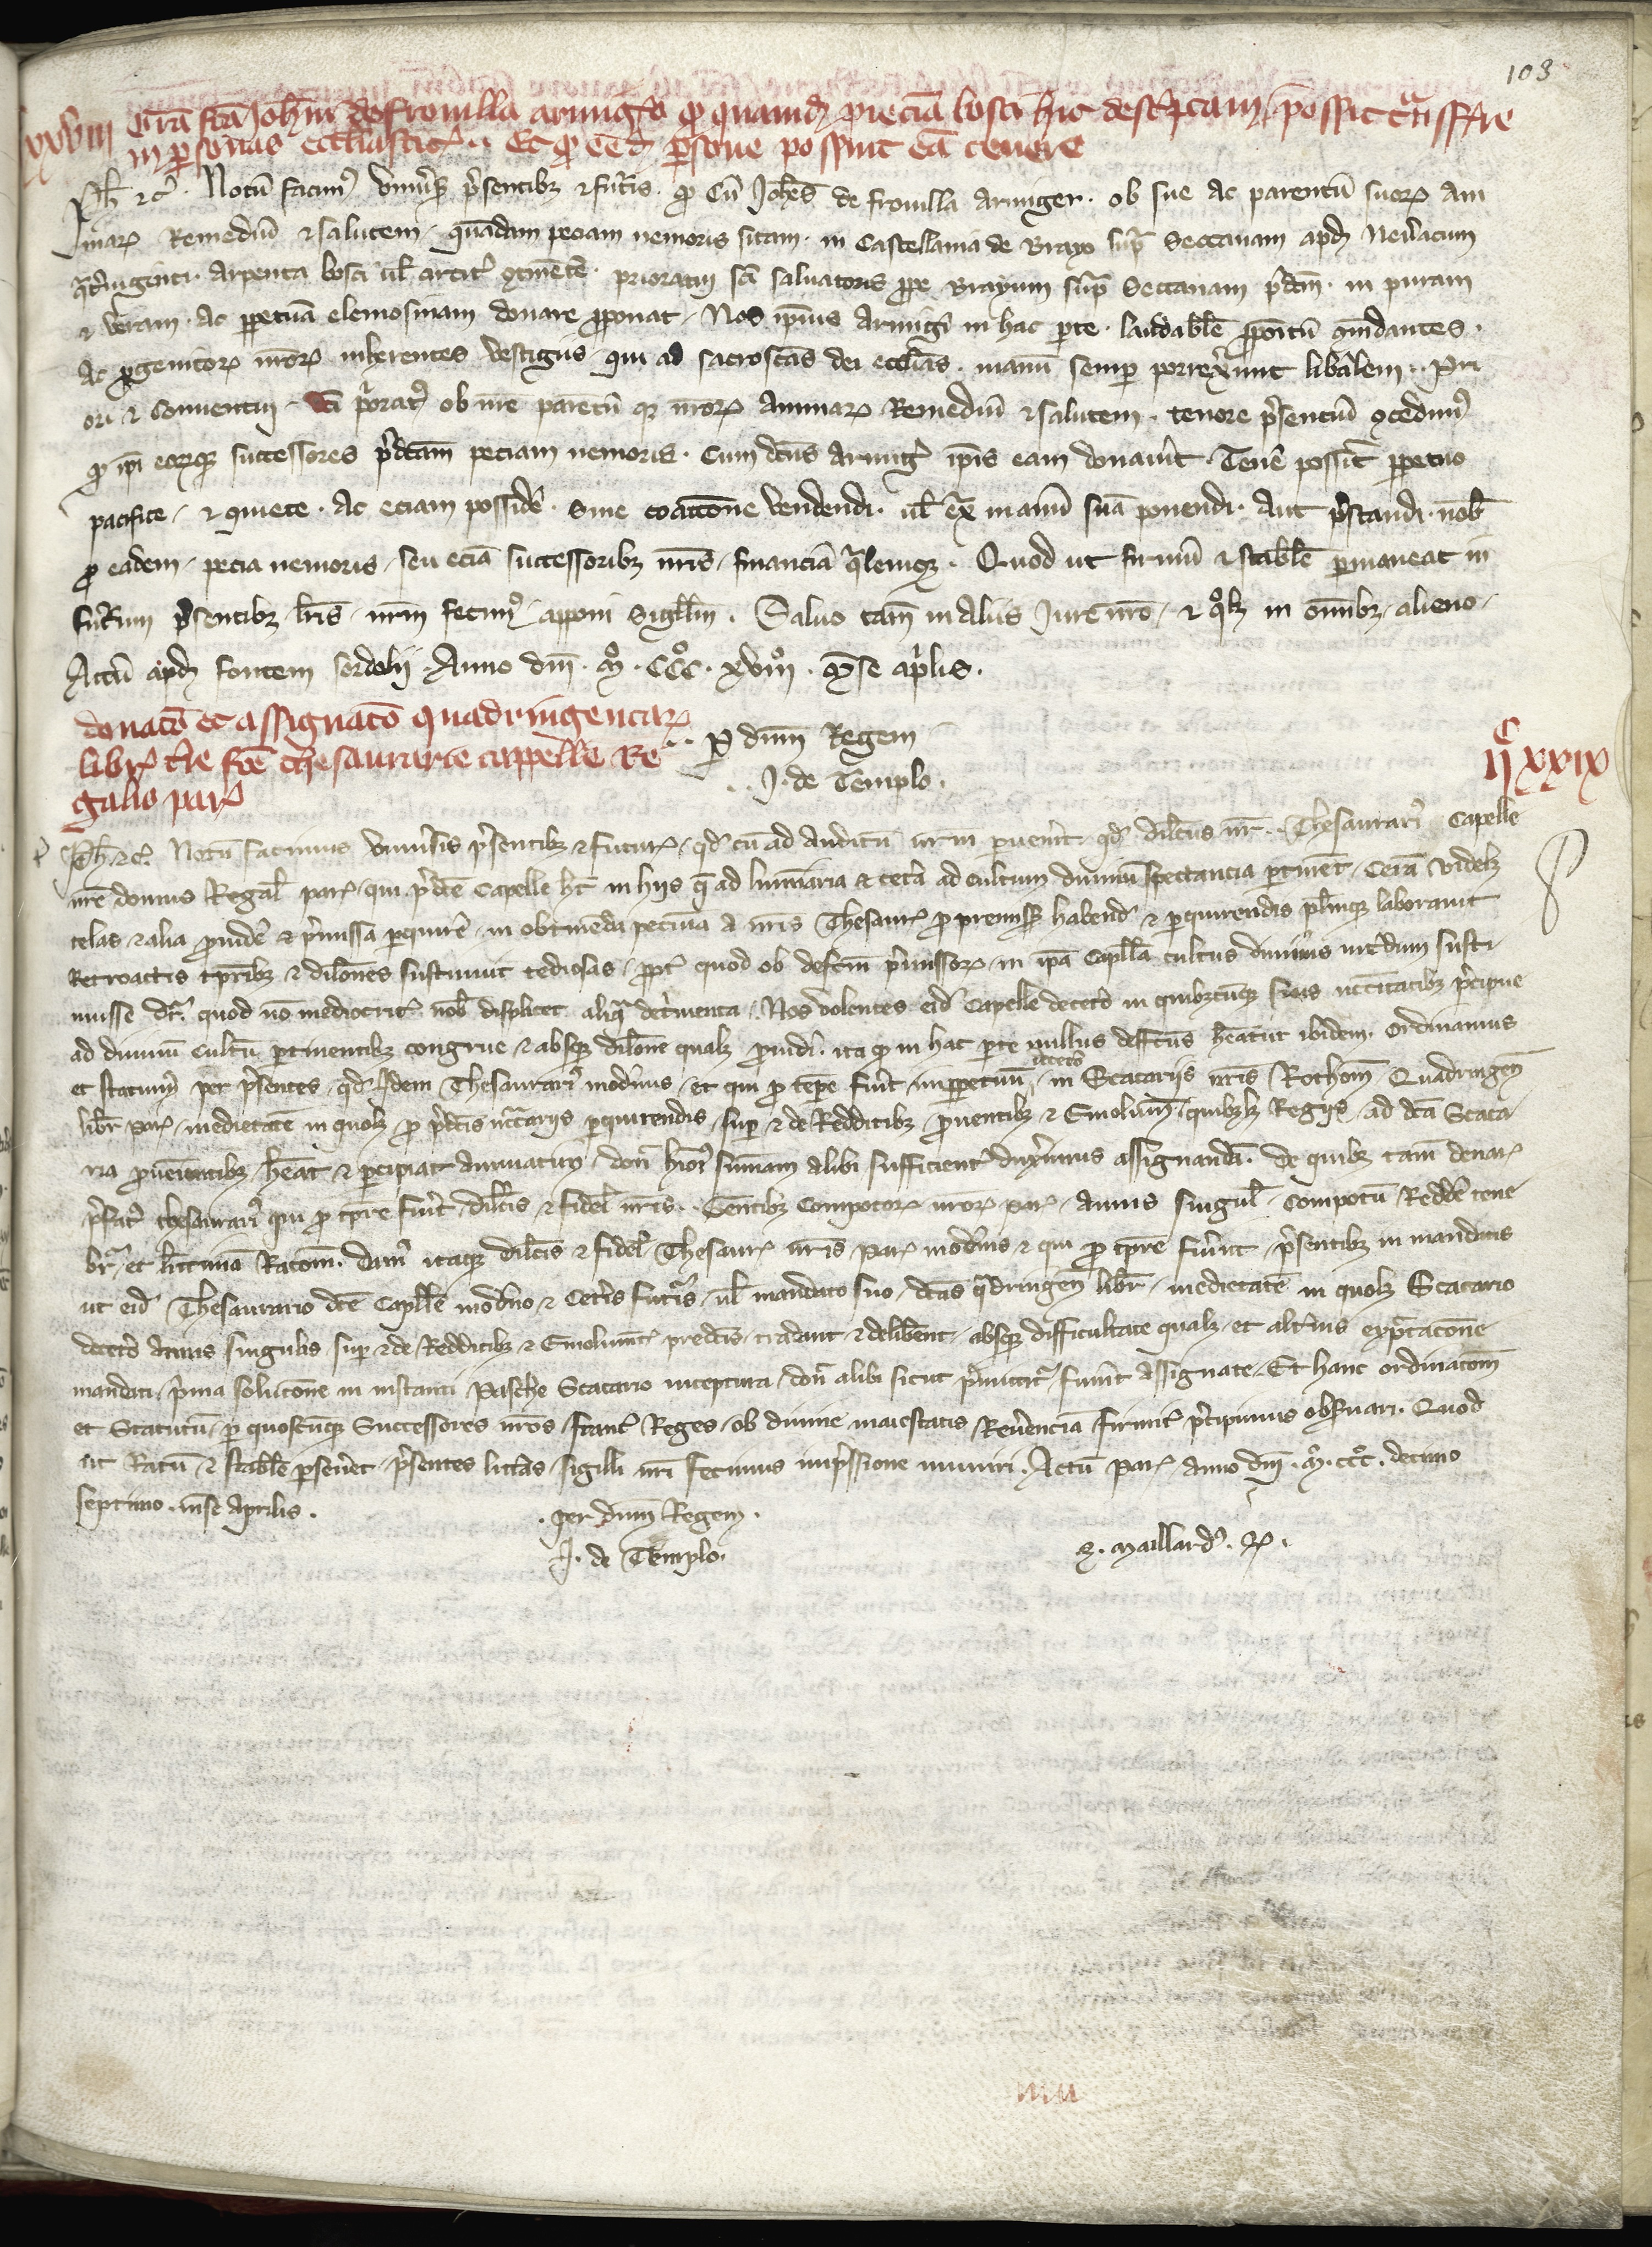 103
xxviii Gra fca Johi de frouilla armigero qd quamdam peciam bosci hic descriptam possit transferre
in personas ecclesiasticas. Et qd eedem persone possint eam tenere
Ph. &c. Notum facimus universis presentibz & futuris. qd cum Johes de frouilla armiger. ob sue ac parentum suorum ani
marum Remedium & salutem. quandam peciam nemoris sitam. in Castellania de Brayo supra Seccanam apud
quadriginti. arpenta bosci vel circiter continentem. prioratui sci saluatoris prope Brayum supra Seccanam predictum. in puram
& veram. ac perpetuam elemosinam donare proponat. Nos ipius armigeri in hac parte. laudabile propositum commendantes.
Ac progenitorum nrorum inherentes vestigiis qui ad sacroscas dei ecclesias. manum semper porrexerunt liberalem. Pri
ori & conuentui dicti prioratus ob nre parentum qz nrorum animarum Remedium & salutem. tenore presentium concedimus
qd ipi eorumqz successores predictam peciam nemoris. Cum dictus armiger ipis eam donauerit. Tenere possint perpetuo
pacifice & quiete. Ac eciam possidere. sine coaccione vendendi. vel extra manum suam ponendi. Aut prestandi. nobis
pro eadem pecia nemoris seu eciam successoribz nris financiam qualemcumqz. Quod ut firmum & stabile permaneat in
futurum presentibz lris nrm fecimus apponi Sigillum. Saluo tamen in aliis Jure nro & quolibet in omnibz alieno.
Actum apud fontem sordolij. Anno dni. Mo. CCCo. xviiio. Mense aprilis.
donatio et assignatio quadringentarum
librarum thesaurarie cappelle Re
galis par.
Per dnm Regem
J. de Templo.
iic xxix
Ph. &c. Notum facimus vniuersis presentibz & futuris, qd cum ad auditum nrm peruenerit qd dilectus nr Thesaurarius Capelle
nre domus Regalis par. qui predicte Capelle habet in hijs que ad luminaria & cetera ad cultum diuinum spectancia pertinent Ceram videlicet
telas & alia prouidere & premissa perquirere in obtinenda pecunia a nris Thesaurariis pro premissis habend & perquirendis plerumqz laborauit
Retroactis temporibz & dilones sustinuit tediosas, propter quod ob defectum premissorum in ipa Capella cultus diuinus interdum susti
nuisse dicitur quod non mediocriter nobis displicet aliqua detrimenta. Nos volentes eidem Capelle decetero in quibuscumqz suis necessitatibz precipue
ad diuinum cultum pertinentibz congrue & absqz dilone qualibet prouideri. ita qd in hac parte nullus defectus habeatur ibidem. ordinamus
et statuimus per presentes qd idem Thesaurarius modernus et qui pro tempore fuerit imperpetuum decetero in Scacariis nris Rothom. Quadringen.
libr. par. medietatem in quolibet pro predictis necessariis perquirendis super & de Redditibz prouentibz & Emolum. quibuslibet Regiis ad dicta Scaca
ria prouenientibz habeat & percipiat annuatim, donec hmoi summam alibi sufficienter duxerimus assignandam. De quibz tamen denariis
prefatus thesaurarius qui pro tempore fuerit, dilectis & fidelibus nris Gentibz Compotorum nrorum par. Annis singulis compotum Reddere tene
bitur et legitimam Racionem. Damus itaqz dilectis & fidelibus Thesaurariis nris par. modernis & qui pro tempore fuerint presentibz in mandatis
ut eidem Thesaurario dicte Capelle moderno & Ceteris futuris vel mandato suo dictas quadringen. libr. medietatem in quolibet Scacario
decetero Annis singulis super & de Redditibz & Emolumentis predictis tradant & deliberent absqz difficultate qualibet et alterius expectacione
mandati, prima solucione in instanti Pasche Scacario inceptura, donec alibi sicut premittitur fuerint assignate. Et hanc ordinacionem
et Statutum per quoscumqz Successores nros francie Reges ob diuine maiestatis Reuerenciam firmiter precipimus obseruari. Quod
ut Ratum & stabile perseueret presentes litteras sigilli nri fecimus impressione muniri. Actum par. anno dni. Mo. CCCo. decimo
septimo. mense aprilis.
per dnm Regem.
J. de Templo.
maillard.